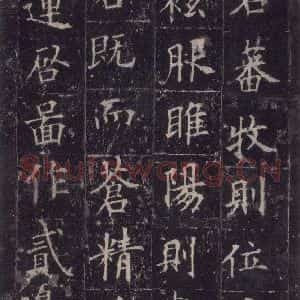 蕃牧則位
袨服睢陽則
既而蒼精
運启啚作貳
Shufawang.CN